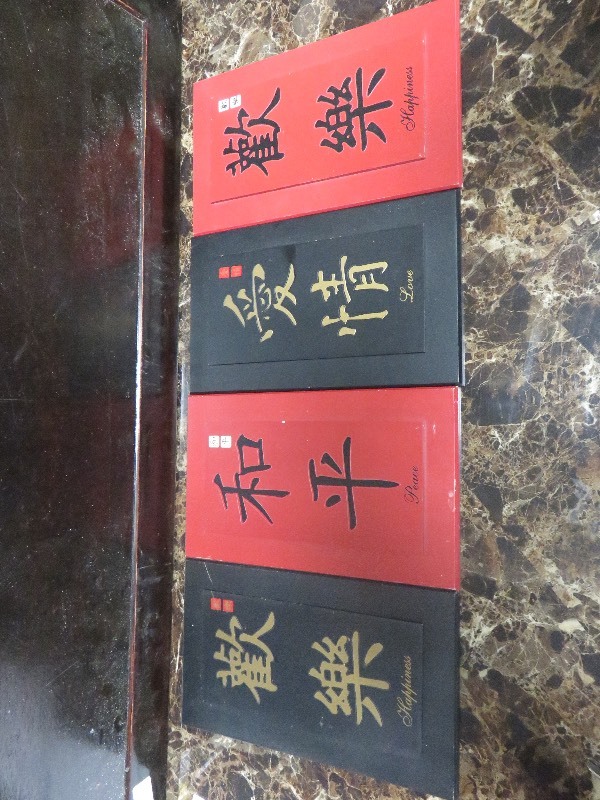 歡樂
Happiness
和平
Peace
愛情
Love
歡樂
Happiness